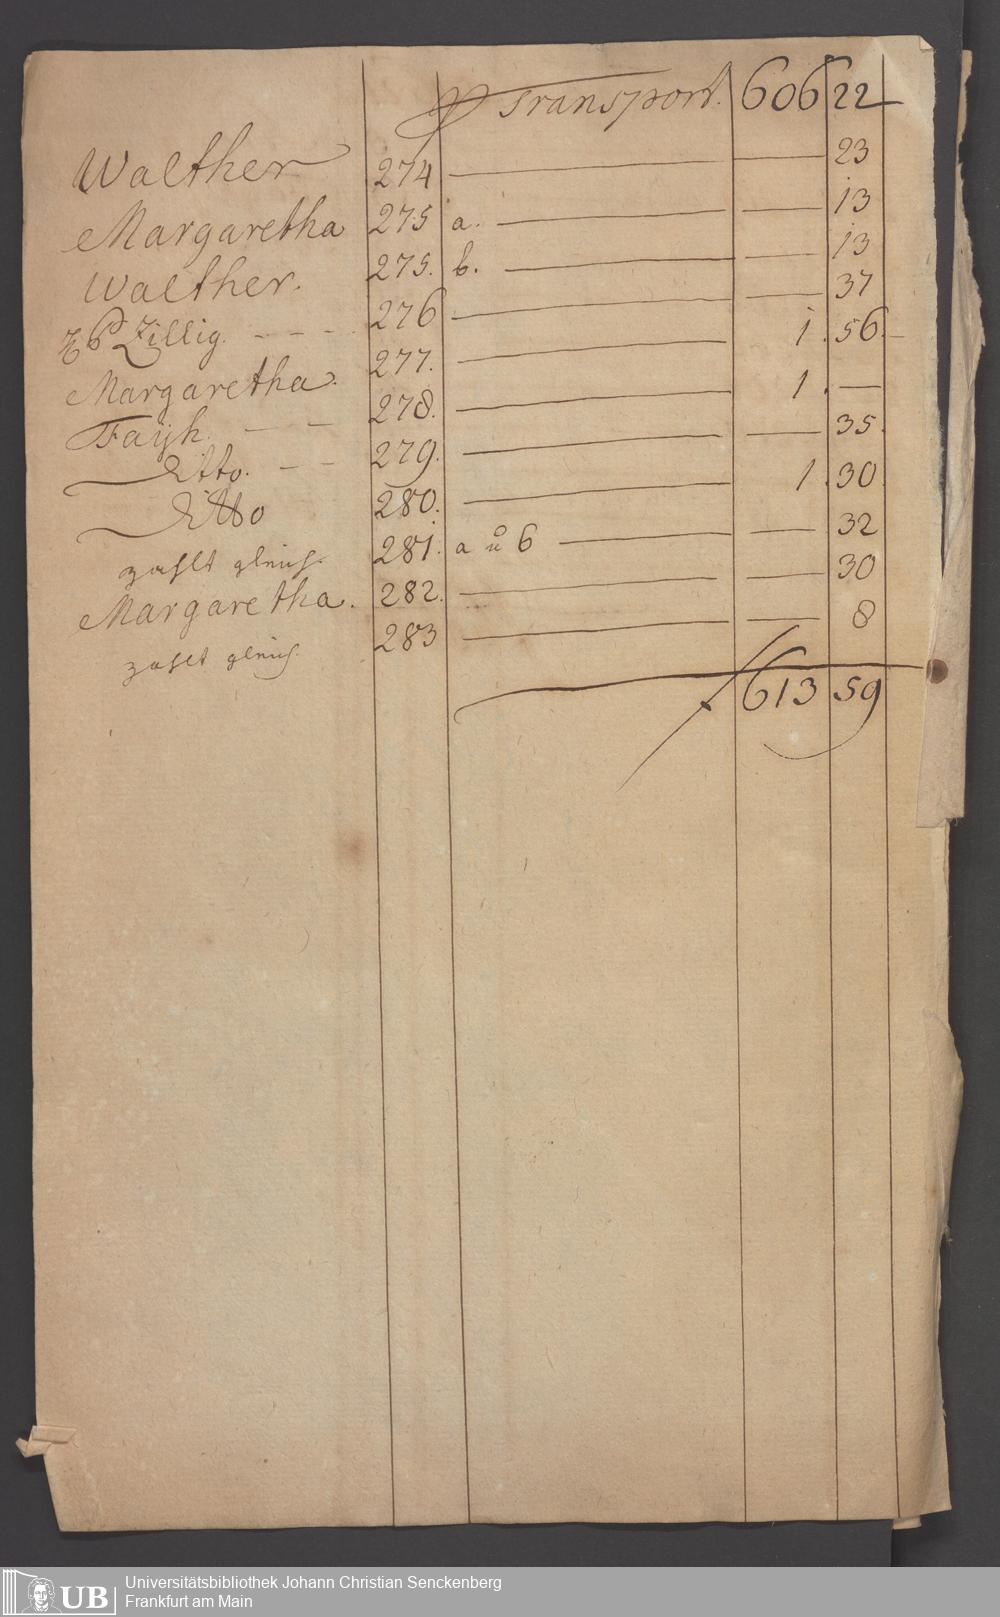 Transport. 606 22
Walther 274 — — 23
Margaretha 275 a. — — 13
Walther. 275. b. — — 13
Zillig. - - - 276 — — 37
Margaretha. 277. — 1. 56.
Fayh. — — 278. — 1. —
ditto. - - 279. — — 35.
ditto 280. — 1. 30.
zahlt gleich. 281. a u b — — 32
Margaretha. 282. — — 30
zahlt gleich. 283 — — 8
613 59
UB
Universitätsbibliothek Johann Christian Senckenberg
Frankfurt am Main